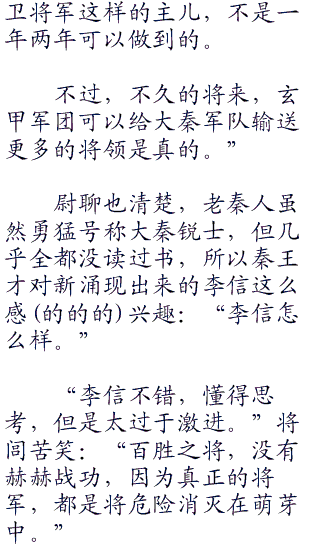 卫将军这样的主儿，不是一
年两年可以做到的。
不过，不久的将来，玄
甲军团可以给大秦军队输送
更多的将领是真的。”
尉聊也清楚，老秦人虽
然勇猛号称大秦锐士，但几
乎全都没读过书，所以秦王
才对新涌现出来的李信这么
感(的的的)兴趣：“李信怎
么样。”
“李信不错，懂得思
考，但是太过于激进。”将
闾苦笑：“百胜之将，没有
赫赫战功，因为真正的将
军，都是将危险消灭在萌芽
中。”